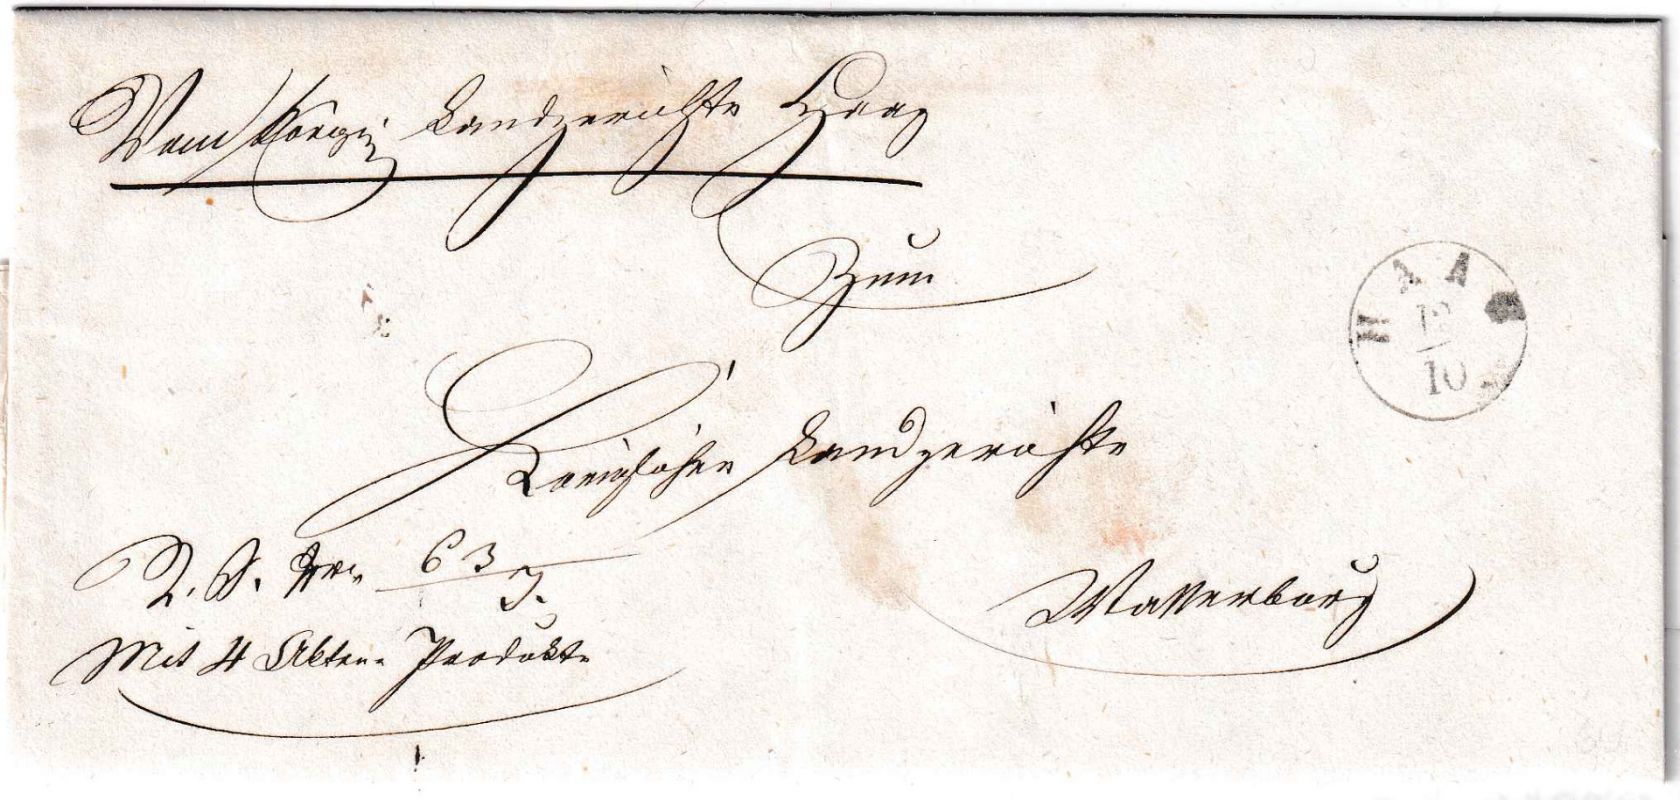 Vom Königl. Landgerichte Haag
Zum
Königlichen Landgerichte
Wasserburg
R. S. Nro. 63/J.
Mit 4 Akten-Produkte
HAAG
12
10